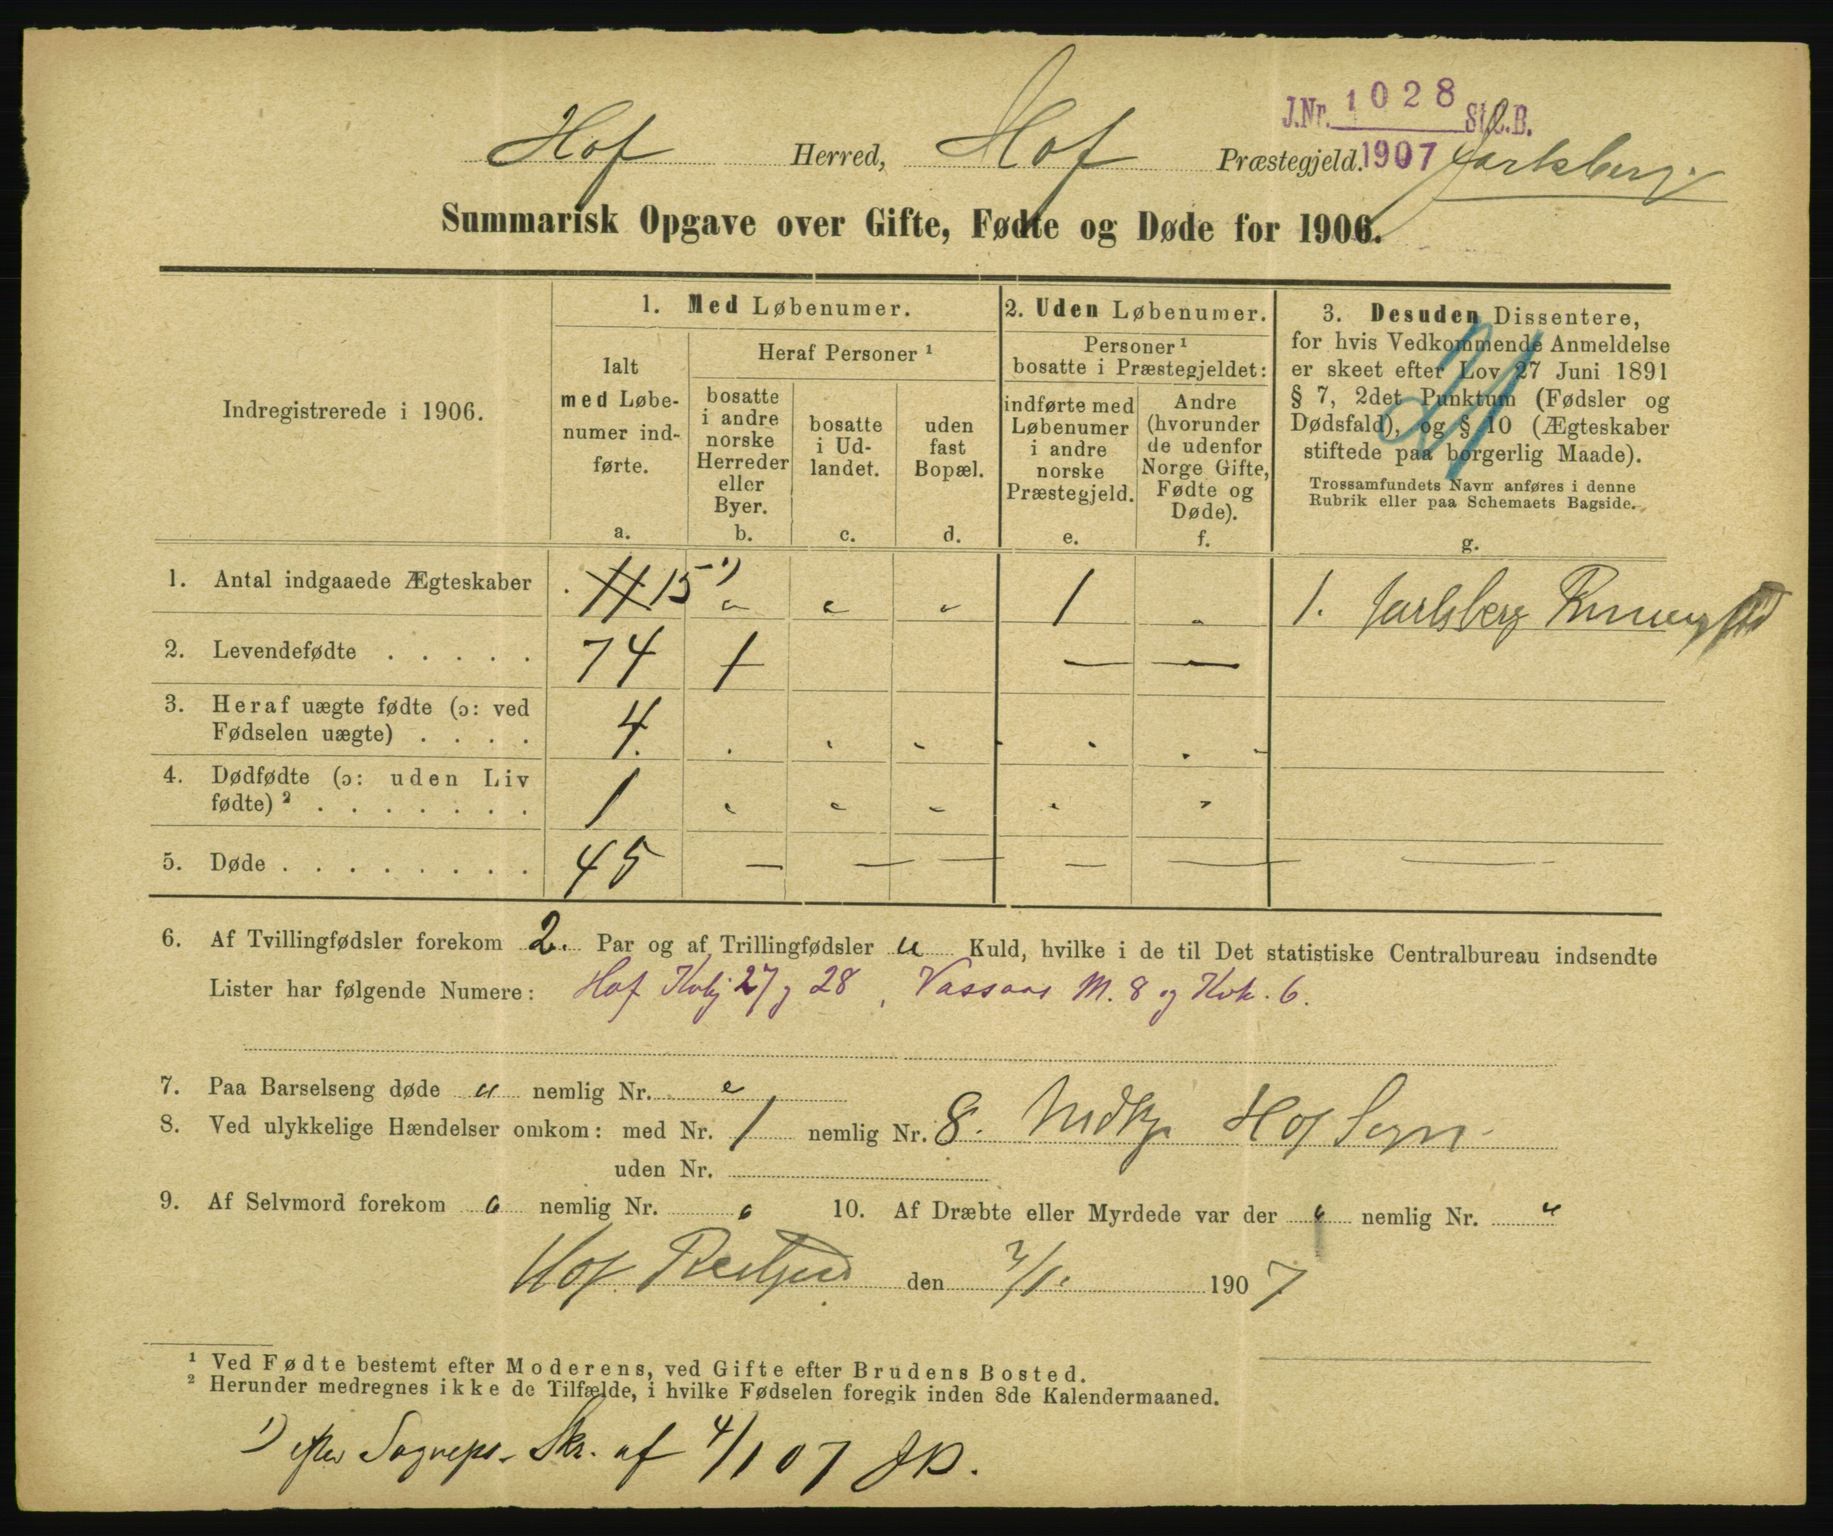 J.Nr. 1028 St.C.B.
Hof Herred, Hof Præstegjeld. 1907 Jarlsberg.
Summarisk Opgave over Gifte, Fødte og Døde for 1906.
Indregistrerede i 1906.
1. Med Løbenumer.
Ialt
med Løbe-
numer ind-
førte.
a.
Heraf Personer ¹
bosatte
i andre
norske
Herreder
eller
Byer.
b.
bosatte
i Ud-
landet.
c.
uden
fast
Bopæl.
d.
2. Uden Løbenumer.
Personer ¹
bosatte i Præstegjeldet:
indførte med
Løbenumer
i andre
norske
Præstegjeld.
e.
Andre
(hvorunder
de udenfor
Norge Gifte,
Fødte og
Døde).
f.
3. Desuden Dissentere,
for hvis Vedkommende Anmeldelse
er skeet efter Lov 27 Juni 1891
§ 7, 2det Punktum (Fødsler og
Dødsfald), og § 10 (Ægteskaber
stiftede paa borgerlig Maade).
Trossamfundets Navn anføres i denne
Rubrik eller paa Schemaets Bagside.
g.
1. Antal indgaaede Ægteskaber 15 ¹) " " " 1 " 1. Jarlsberg
2. Levendefødte . . . . . 74 1 — —
3. Heraf uægte fødte (ɔ: ved
Fødselen uægte) . . . . 4. . . . . .
4. Dødfødte (ɔ: uden Liv
fødte) ² . . . . . . . 1 " " " " "
5. Døde . . . . . . . . 45 — — — — — —
6. Af Tvillingfødsler forekom 2. Par og af Trillingfødsler " Kuld, hvilke i de til Det statistiske Centralbureau indsendte
Lister har følgende Numere: Hof Kvkj 27 og 28, Vassaas M. 8 og Kvk. 6.
7. Paa Barselseng døde " nemlig Nr. "
8. Ved ulykkelige Hændelser omkom: med Nr. 1 nemlig Nr. 8. Mdkj. Hof Sogn.
uden Nr.
9. Af Selvmord forekom " nemlig Nr. " 10. Af Dræbte eller Myrdede var der " nemlig Nr. "
Hof Prestgjeld den 2/1. 1907
¹ Ved Fødte bestemt efter Moderens, ved Gifte efter Brudens Bosted.
² Herunder medregnes ikke de Tilfælde, i hvilke Fødselen foregik inden 8de Kalendermaaned.
¹) efter Sogneps. Skr. af 4/1 07